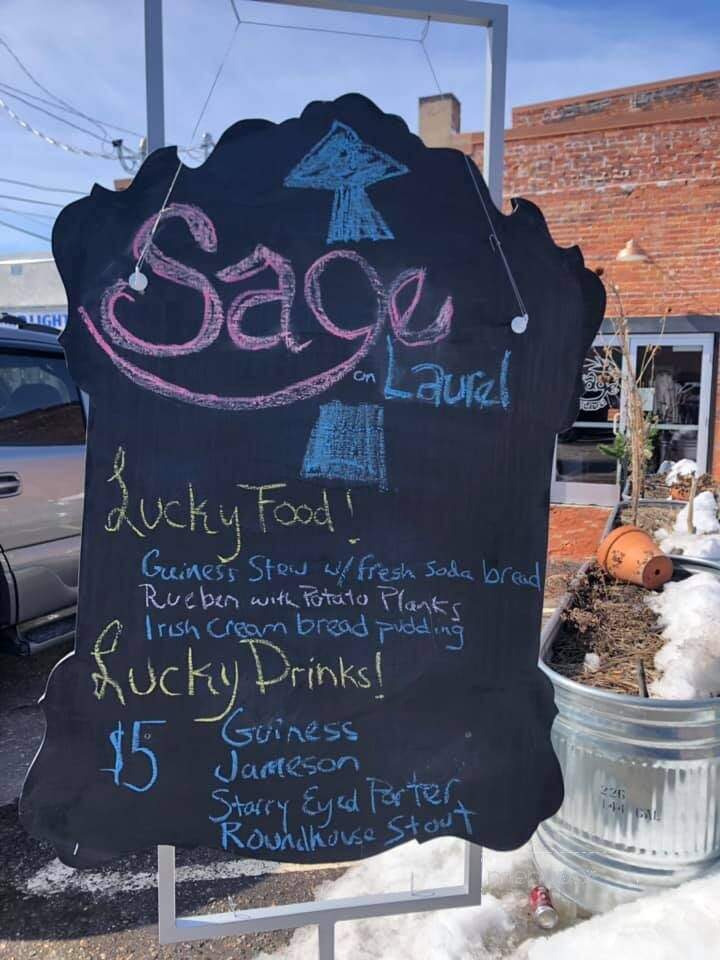 Sage
on Laurel
LIGHT
Lucky Food!
Guiness Stew w/ fresh soda bread
Rueben with Potato Planks
Irish Cream bread pudding
Lucky Drinks!
$5
Guiness
Jameson
Starry Eyed Porter
Roundhouse Stout
226
144 GAL